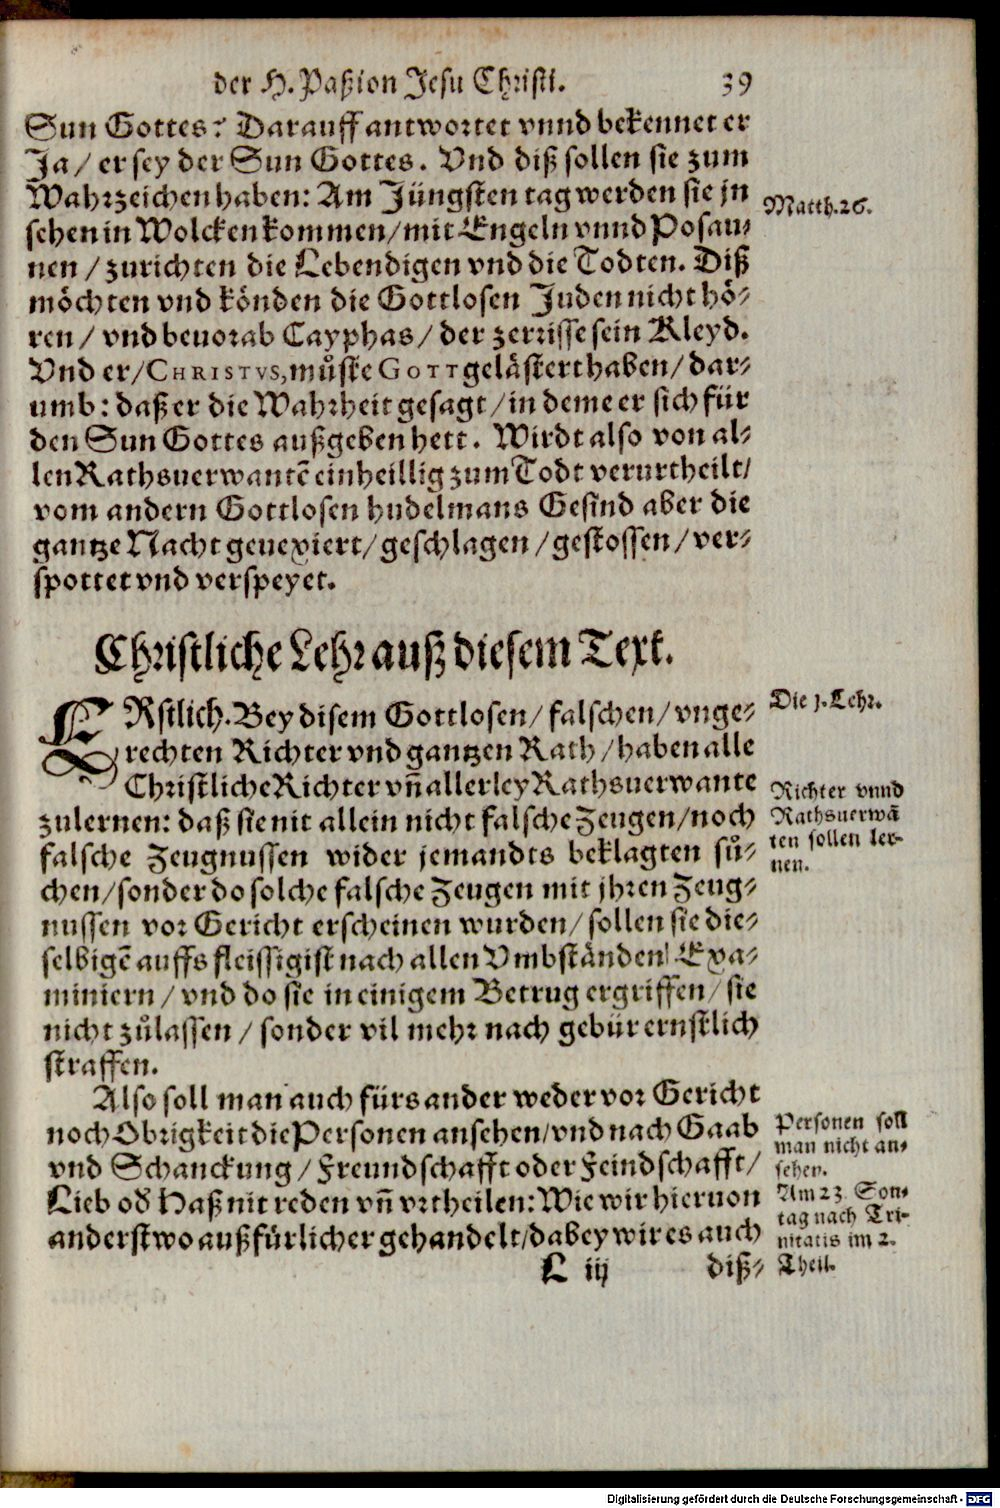 der H. Paßion Jesu Christi. 39
Sun Gottes? Darauff antwortet vnnd bekennet er
Ja/ er sey der Sun Gottes. Vnd diß sollen sie zum
Wahrzeichen haben: Am Jüngsten tag werden sie jn
sehen in Wolcken kommen/ mit Engeln vnnd Posau-
nen / zurichten die Lebendigen vnd die Todten. Diß
möchten vnd könden die Gottlosen Juden nicht hö-
ren / vnd beuorab Cayphas / der zerrisse sein Kleyd.
Vnd er/ CHRISTVS, müste GOTT gelästert haben / dar-
umb: daß er die Wahrheit gesagt / in deme er sich für
den Sun Gottes außgeben hett. Wirdt also von al-
len Rathsuerwantē einheillig zum Todt verurtheilt/
vom andern Gottlosen hudelmans Gesind aber die
gantze Nacht geuexiert/ geschlagen / gestossen / ver-
spottet vnd verspeyet.
Matth. 26.
Christliche Lehr auß diesem Text.
ERstlich. Bey disem Gottlosen/ falschen/ vnge-
rechten Richter vnd gantzen Rath / haben alle
Christliche Richter vñ allerley Rathsuerwante
zulernen: daß sie nit allein nicht falsche Zeugen/ noch
falsche Zeugnussen wider jemandts beklagten sů-
chen/ sonder do solche falsche Zeugen mit jhren Zeug-
nussen vor Gericht erscheinen wurden/ sollen sie die-
selbigē auffs fleissigist nach allen Vmbständen Exa-
miniern / vnd do sie in einigem Betrug ergriffen/ sie
nicht zůlassen / sonder vil mehr nach gebür ernstlich
straffen.
Die 1. Lehr.
Richter vnnd
Rathsuerwā
ten sollen ler-
nen.
Also soll man auch fürs ander weder vor Gericht
noch Obrigkeit die Personen ansehen/ vnd nach Gaab
vnd Schanckung / Freundschafft oder Feindschafft/
Lieb od̄ Haß nit reden vñ vrtheilen: Wie wir hieruon
anderstwo außfürlicher gehandelt/ dabey wir es auch
Personen soll
man nicht an-
sehen.
Am 23 Son-
tag nach Tri-
nitatis im 2.
Theil.
L iij diß-
Digitalisierung gefördert durch die Deutsche Forschungsgemeinschaft - DFG